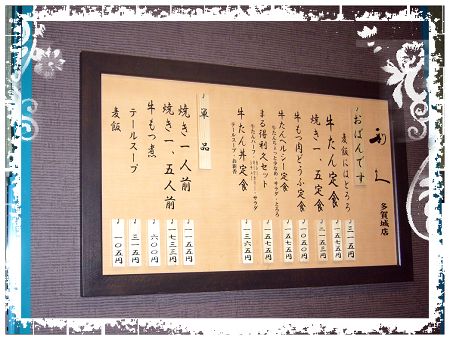 利久
多賀城店
おばんです
麦飯にはとろろ 三一五円
牛たん定食 一五七五円
焼き一、五定食 二一五三円
牛もつ肉どうふ定食 一〇五〇円
牛たんヘルシー定食 一五七五円
まる得利久セット 一五七五円
牛たん丼定食 一三六五円
単品
焼き一人前 一一五五円
焼き一、五人前 一七三三円
牛もつ煮 六〇〇円
テールスープ 三一五円
麦飯 一〇五円